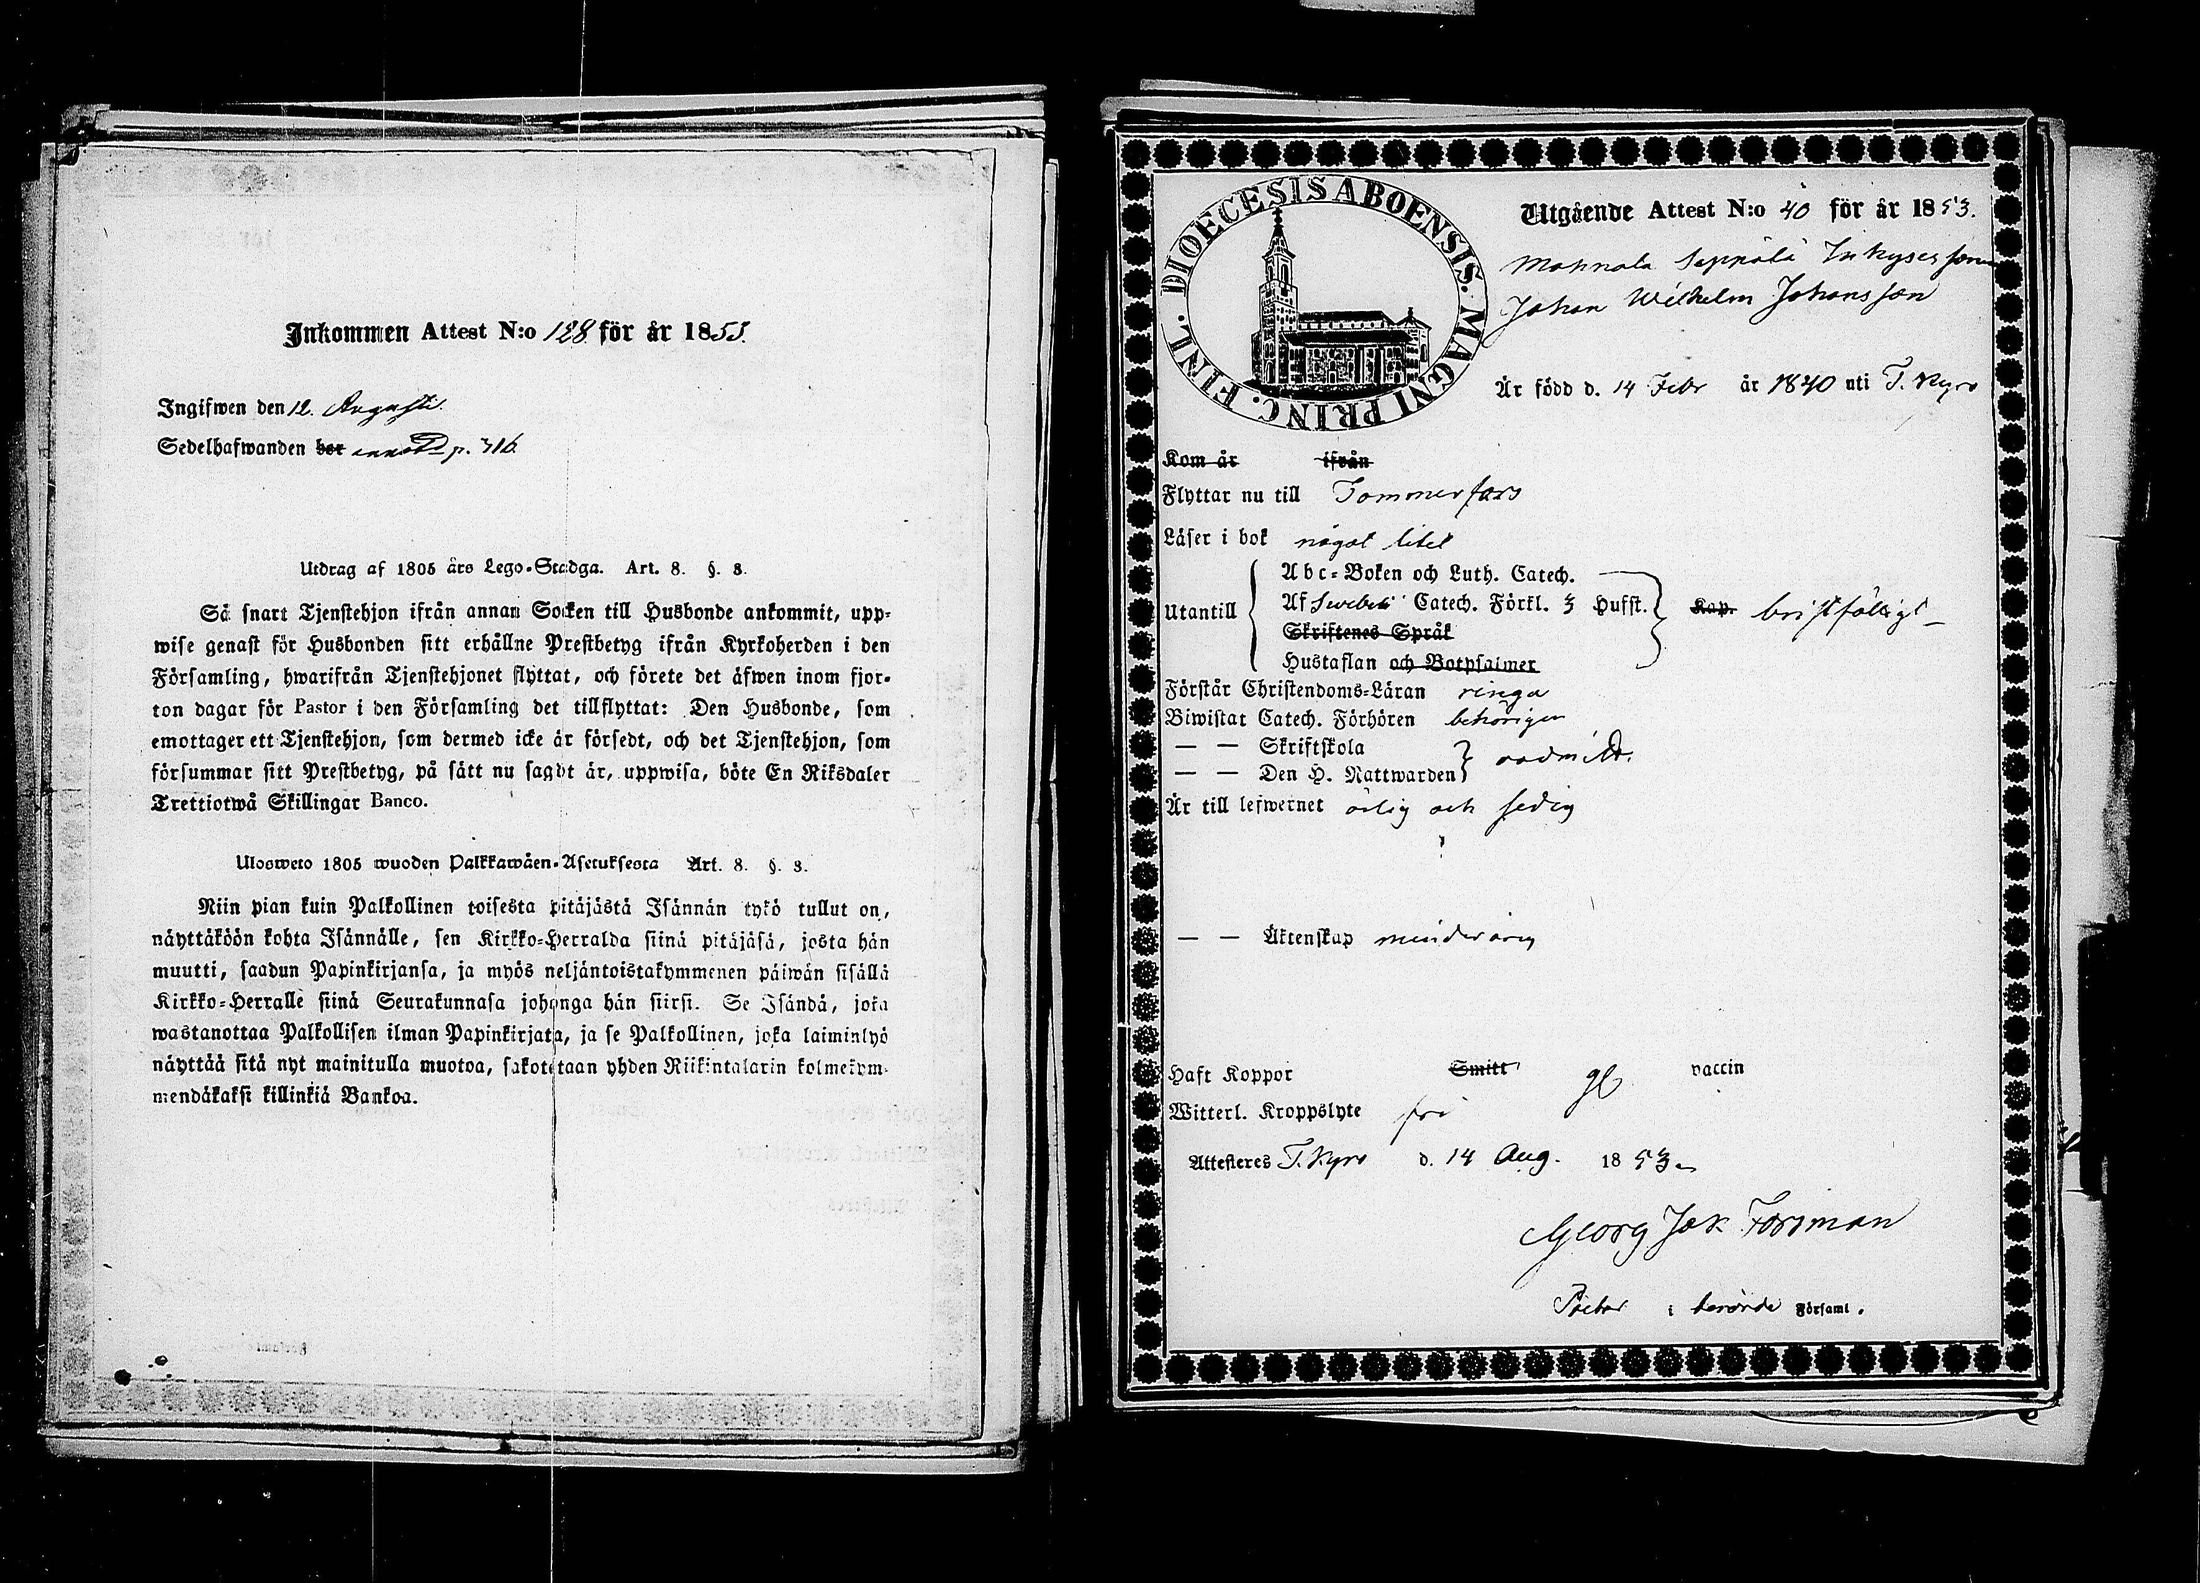 Inkommen Attest N:o 128 för år 1853.
Ingifwen den 12. Augusti.
Sedelhafwanden bor annot. p. 316
Utdrag af 1805 års Lego-Stadga. Art. 8. §. 3.
Så snart Tjenstehjon ifrån annan Socken till Husbonde ankommit, upp-
wise genast för Husbonden sitt erhållne Prestbetyg ifrån Kyrkoherden i den
Församling, hwarifrån Tjenstehjonet flyttat, och förete det äfwen inom fjor-
ton dagar för Pastor i den Församling det tillflyttat: Den Husbonde, som
emottager ett Tjenstehjon, som dermed icke är försedt, och det Tjenstehjon, som
försummar sitt Prestbetyg, på sätt nu sagdt är, uppwisa, böte En Riksdaler
Trettiotwå Skillingar Banco.
Ulosweto 1805 wuoden Palkkawäen-Asetuksesta Art. 8. §. 3.
Niin pian kuin Palkollinen toisesta pitäjästä Isännän tykö tullut on,
näyttäköön kohta Isännälle, sen Kirkko-Herralda siinä pitäjäsä, josta hän
muutti, saadun Papinkirjansa, ja myös neljäntoistakymmenen päiwän sisällä
Kirkko-Herralle siinä Seurakunnasa johonga hän siirsi. Se Isändä, joka
wastanottaa Palkollisen ilman Papinkirjata, ja se Palkollinen, joka laiminlyö
näyttää sitä nyt mainitulla muotoa, sakotetaan yhden Riikintalarin kolmekym-
mendäkaksi killinkiä Bankoa.
DIOECESIS ABOENSIS. MAGNI PRINC. FINL.
Utgående Attest N:o 40 för år 1853.
Seppälä Inhyses sonen
Johan Wilhelm Johansson
Är född d. 14 Febr år 1840 uti T. Kyro
Kom år ifrån
Flyttar nu till Tammerfors
Läser i bok något litet
Utantill
Abc-Boken och Luth. Catech.
Af Svebeli Catech. Förkl. 3 Hufst. Kap. bristfälligt
Skriftenes Språk
Hustaflan och Botpsalmer
Förstår Christendoms-Läran ringa
Biwistat Catech. Förhören behörigen
— — Skriftskola
— — Den H. Nattwarden oadmitt.
Är till lefwernet ärlig och sedig
— — Äktenskap minderårig
Haft Koppor Smitt gl vaccin
Witterl. Kroppslyte fri
Attesteres T. Kyro d. 14 Aug. 1853
Georg Jak Forsman
i berörde Församl.